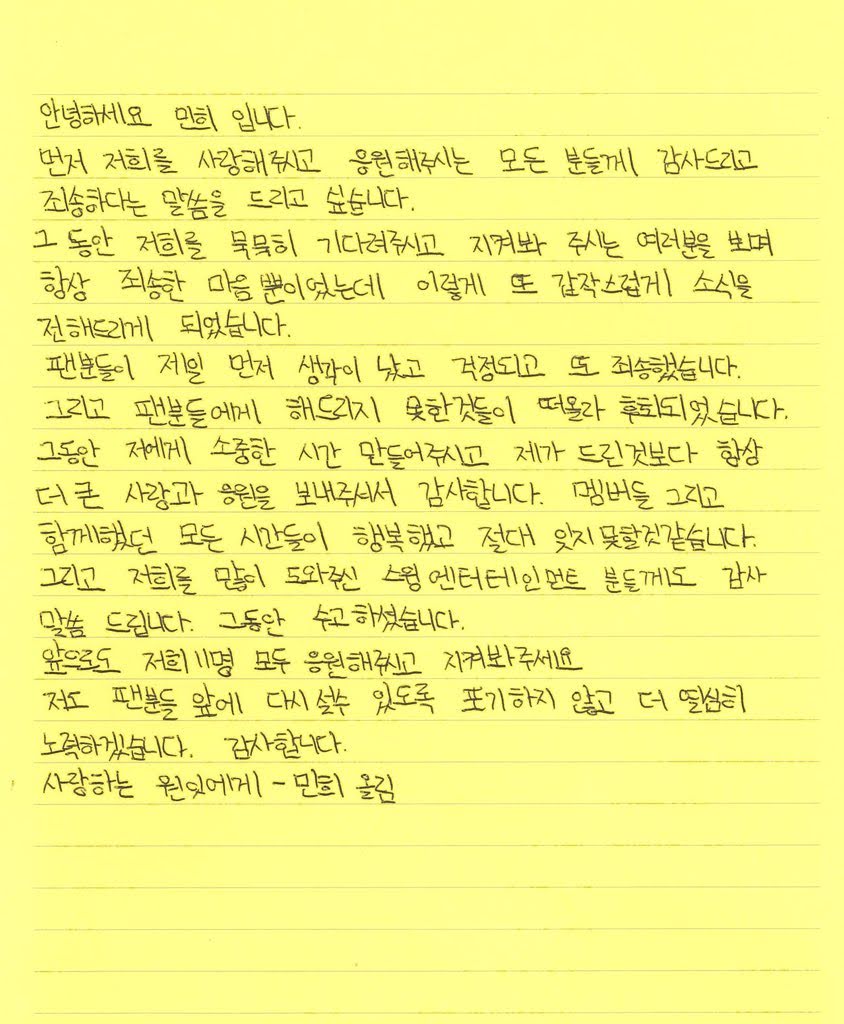 안녕하세요 민희 입니다.
먼저 저희를 사랑해주시고 응원해주시는 모든 분들께 감사드리고
죄송하다는 말씀을 드리고 싶습니다.
그 동안 저희를 묵묵히 기다려주시고 지켜봐 주시는 여러분을 보며
항상 죄송한 마음뿐이었는데 이렇게 또 갑작스럽게 소식을
전해드리게 되었습니다.
팬분들이 제일 먼저 생각이 났고 걱정되고 또 죄송했습니다.
그리고 팬분들에게 해드리지 못한것들이 떠올라 후회되었습니다.
그동안 저에게 소중한 시간 만들어주시고 제가 드린것보다 항상
더 큰 사랑과 응원을 보내주셔서 감사합니다. 멤버들 그리고
함께했던 모든 시간들이 행복했고 절대 잊지못할것같습니다.
그리고 저희를 많이 도와주신 스윙엔터테인먼트 분들께도 감사
말씀 드립니다. 그동안 수고하셨습니다.
앞으로도 저희 11명 모두 응원해주시고 지켜봐주세요
저도 팬분들 앞에 다시 설수 있도록 포기하지 않고 더 열심히
노력하겠습니다. 감사합니다.
사랑하는 원잇에게 - 민희 올림